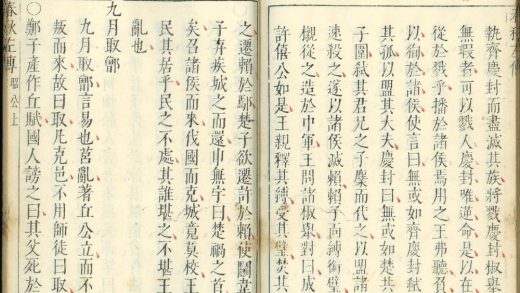 執齊慶封而盡滅其族將戮慶封椒舉
無瑕者可以戮人慶封唯逆命是以在
從於戮乎播於諸侯焉用之王弗聽
以徇於諸侯使言曰無或如齊慶封弑
其孤以盟其大夫慶封曰無或如楚共
子圍弑其君兄之子麇而代之以盟諸
速殺之遂以諸侯滅賴賴子面縛銜璧
櫬從之造於中軍王問諸椒舉對曰成
許僖公如是王親釋其縛受其璧焚其
之遷賴於鄢楚子欲遷許於賴使鬬韋
子弃疾城之而還申無宇曰楚禍之首
矣召諸侯而來伐國而克城竟莫校王
民其居乎民之不處其誰堪之不堪王
亂也
九月取鄫
九月取鄫言易也莒亂著丘公立而不
叛而來故曰取凡克邑不用師徒曰取
○鄭子產作丘賦國人謗之曰其父死於
春秋左傳 昭公上